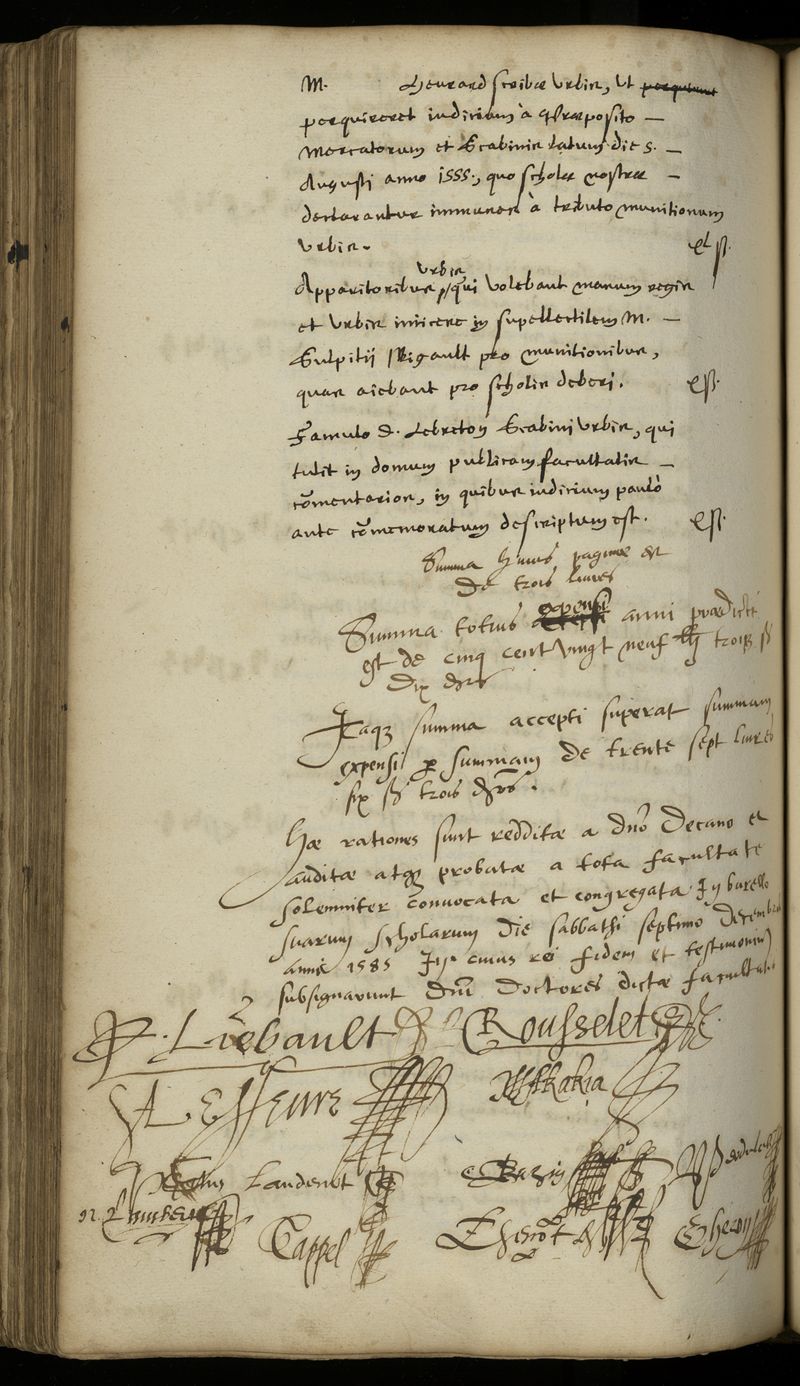 M. Heurard scribæ Urbis, ut perquireret
perquireret indicium à Præposito
Mercatorum et Scabinis latum die 5.
Augusti anno 1555., quo scholæ nostræ
declarantur immunes à tributo munitionum
Urbis.
Apparitoribus urbis, qui volebant manum regis
et Urbis iniicere in supellectilem M.
Sulpitij Rigault pro munitionibus,
quas aiebant pro scholis deberi.
Famulo D. Lebreton Scabini Urbis, qui
tulit in domum publicam facultatis
cõmentarios, in quibus indicium paulò
ante cõmemoratum descriptum est.
Summa huius paginæ est
de trois livres
Summa totius expensi anni prædicti
est de cinq cent vingt neuf trois
dix
Itaq3 summa accepti superat summam
expensi summam de trente sept livres
six trois
Hæ rationes sunt redditæ a dño Decano et
auditæ atq3 probatæ a tota facultate
solemniter convocata et congregata In burello
suarum scholarum die sabbathi septimo decembris
anni 1585 In cuius rei fidem et testimonium
subsignarunt Doctores dictæ facultatis
Liebault Rousselet
Akakia
Landenot
Cappel